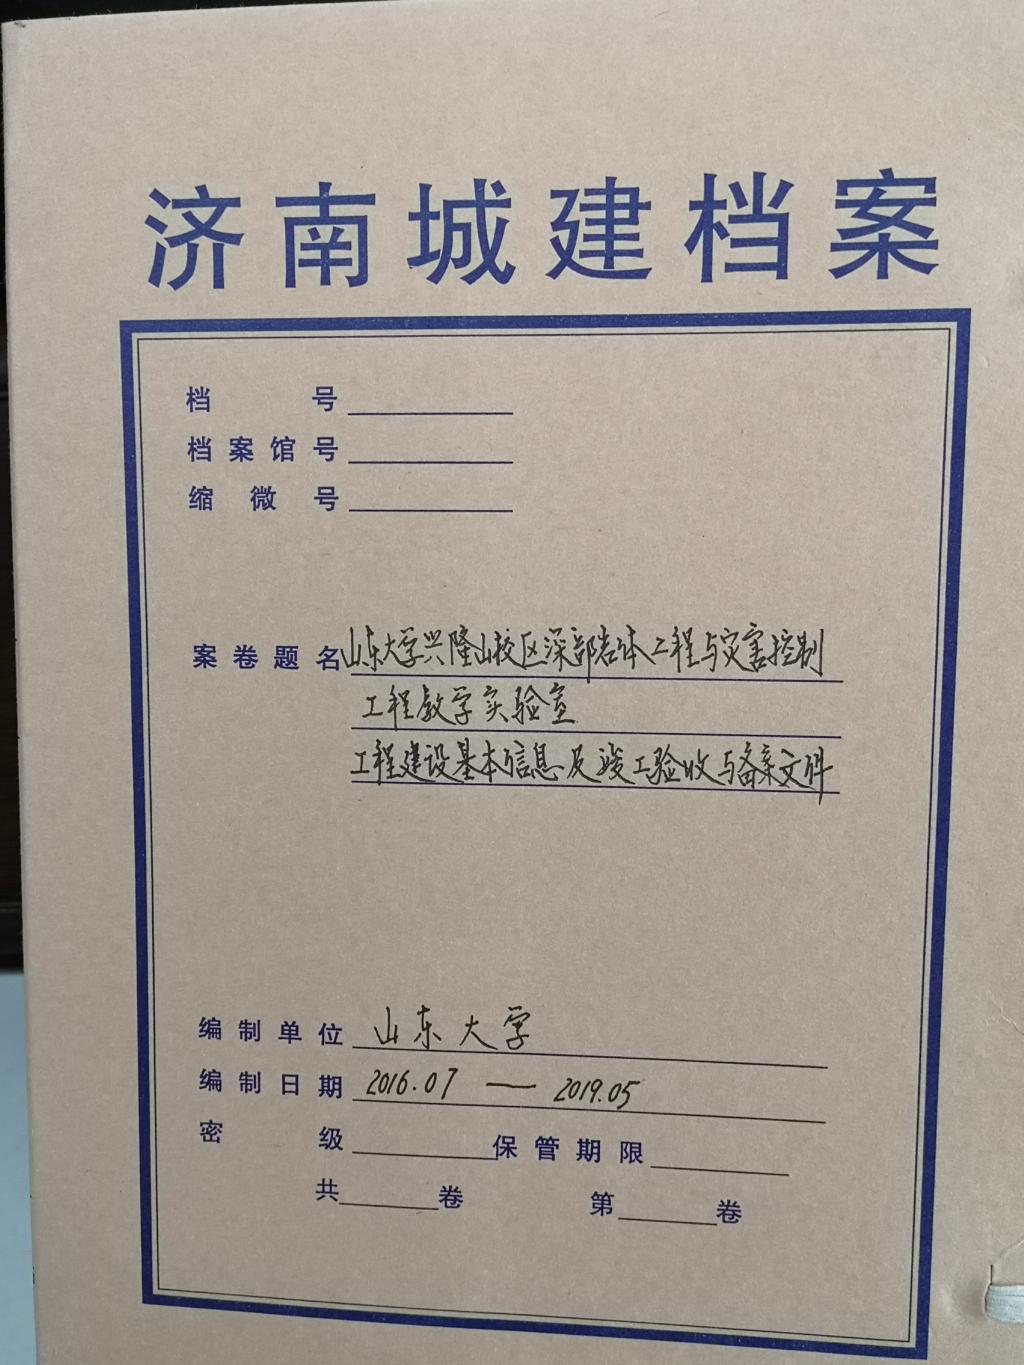 济南城建档案
档号
档案馆号
缩微号
案卷题名 山东大学兴隆山校区深部岩体工程与灾害控制
工程教学实验室
工程建设基本信息及竣工验收与备案文件
编制单位 山东大学
编制日期 2016.07 — 2019.05
密级 保管期限
共 卷 第 卷